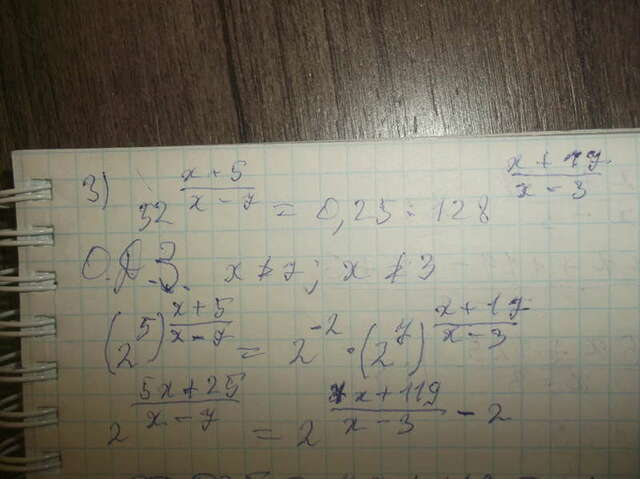 3) 32^((x+5)/(x-7)) = 0,25 · 128^((x+17)/(x-3))
О.Д.З. x ≠ 7; x ≠ 3
(2^5)^((x+5)/(x-7)) = 2^(-2) · (2^7)^((x+17)/(x-3))
2^((5x+25)/(x-7)) = 2^((7x+119)/(x-3) - 2)